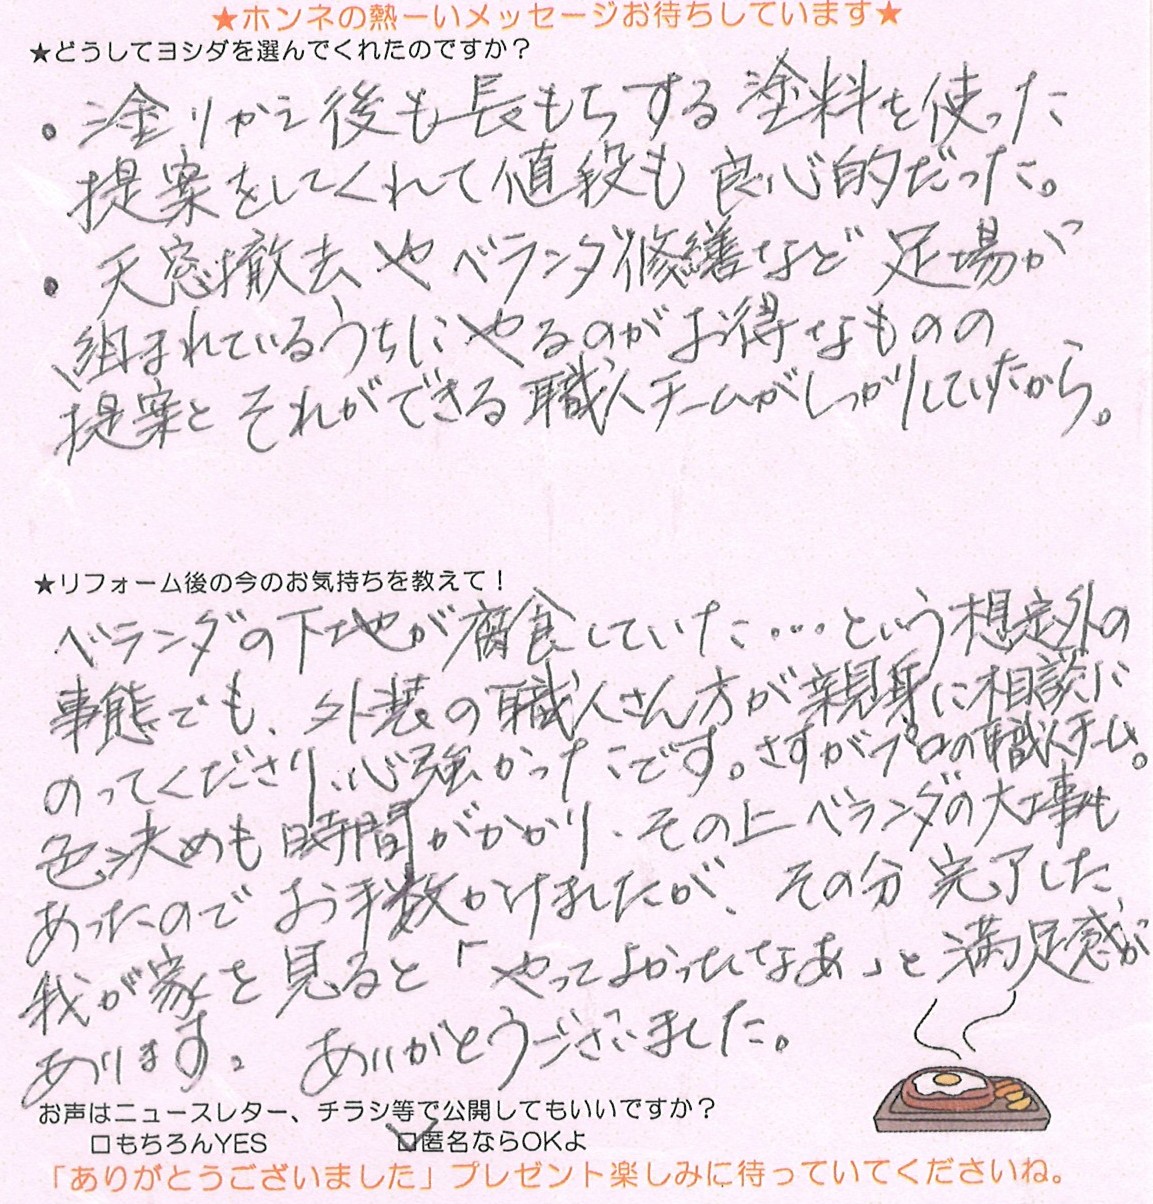 ★ホンネの熱ーいメッセージお待ちしています★
★どうしてヨシダを選んでくれたのですか？
・塗りかえ後も長もちする塗料を使った
提案をしてくれて値段も良心的だった。
・天窓撤去やベランダ修繕など足場が
組まれているうちにやるのがお得なものの
提案とそれができる職人チームがしっかりしていたから。
★リフォーム後の今のお気持ちを教えて！
ベランダの下地が腐食していた…という想定外の
事態でも、外装の職人さん方が親身に相談に
のってくださり、心強かったです。さすがプロの職人チーム。
色決めも時間がかかり、その上ベランダの大工事も
あったのでお手数かけましたが、その分完了した
我が家を見ると「やってよかったなあ」と満足感が
あります。ありがとうございました。
お声はニュースレター、チラシ等で公開してもいいですか？
□もちろんYES ☑匿名ならOKよ
「ありがとうございました」プレゼント楽しみに待っていてくださいね。